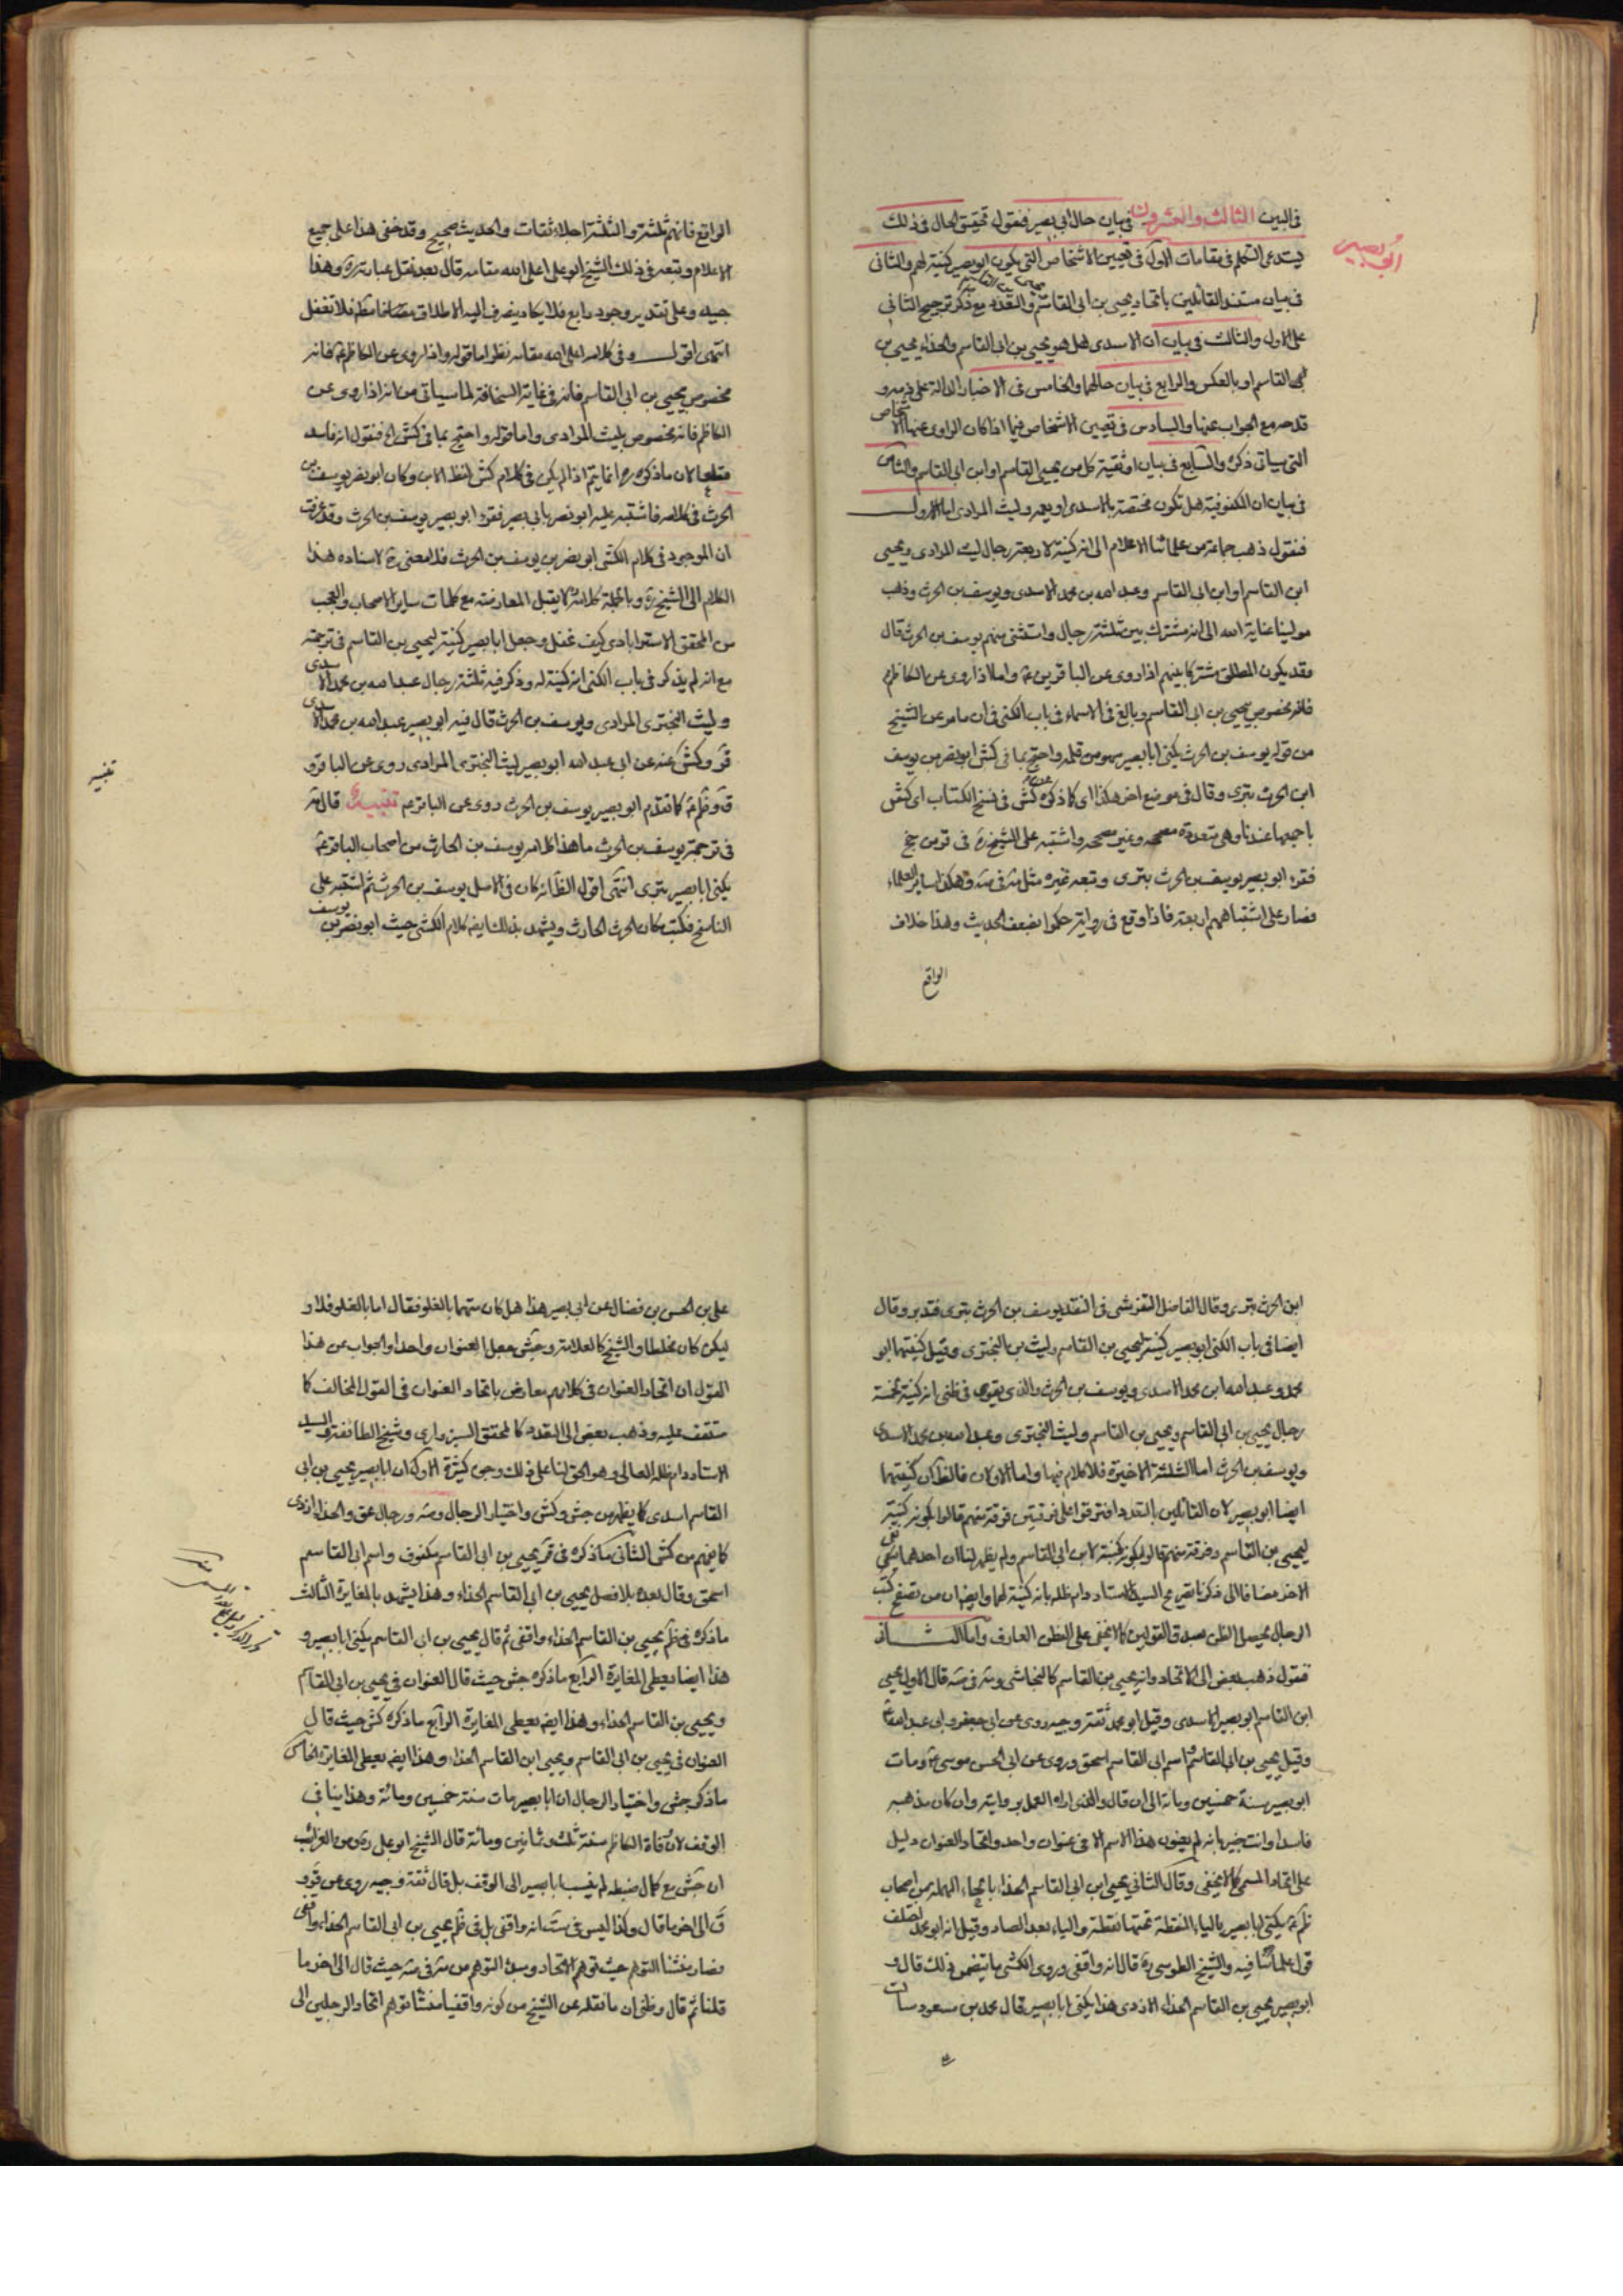 ابو بصير
في البين الثالث والعشرون في بيان حال ابي بصير فنقول تحقيق الحال في ذلك
يستدعي التكلم في مقامات الاول في تعيين الاشخاص التي يكون ابو بصير كنية لهم والثاني
في بيان مستند القائلين باتحاد يحيى بن ابي القاسم والتعدد مع ذكر ترجيح الثاني
على الاول والثالث في بيان ان الاسدي هل هو يحيى بن ابي القاسم والحذاء يحيى بن
القاسم او بالعكس والرابع في بيان حالهما والخامس في الاخبار الدالة على ذمه و
قدحه مع الجواب عنها والسادس في تعيين الاشخاص فيما اذا كان الراوي عنها الاشخاص
التي سياتي ذكره والسابع في بيان اوثقية كل من يحيى القاسم او ابن ابي القاسم والثامن
في بيان ان المكفوفية هل تكون مختصة بالاسدي او يعمه وليث المرادي اما الاول
فنقول ذهب جماعة من علمائنا الاعلام الى انه كنية لاربعة رجال ليث المرادي ويحيى
ابن القاسم او ابن ابي القاسم وعبد الله بن محمد الاسدي ويوسف بن الحرث وذهب
مولينا عناية الله الى انه مشترك بين ثلثة رجال واستثنى منهم يوسف بن الحرث قال
وقد يكون المطلق مشتركا بينهم اذا روى عن الباقرين ع واما اذا روى عن الكاظم ع
فانه مخصوص بيحيى بن ابي القاسم وبالغ في الاسماء في باب الكنى في ان ما مر عن الشيخ
من قوله يوسف بن الحرث يكنى ابا بصير سهو من قلمه واحتج بما في كش ابو نصر بن يوسف
ابن الحرث بتري وقال في موضع اخر هكذا اي كما ذكره كش في نسخ الكتاب اي كش
باجمعها عندنا وهي متعددة مصححه وغير مصححه واشتبه على الشيخ ره في قر من جخ
فقرء ابو بصير يوسف بن الحرث بتري وتبعه غيره مثل مه في صه وهكذا ساير العلماء
فصار على اشتباههم اربعة فاذا وقع في رواية حكموا بضعف الحديث وهذا خلاف
الواقع
الواقع فانهم ثلثة والثلثة اجلاء ثقات والحديث صحيح وقد خفى هذا على جميع
الاعلام وتبعه في ذلك الشيخ ابو على اعلى الله مقامه قال بعد نقل عبارته ره وهذا
جيد وعلى تقدير وجود رابع فلا يكاد ينصرف اليه الاطلاق فلا تغفل
انتهى اقول وفي كلامه اعلى الله مقامه نظر اما قوله واذا روى عن الكاظم ع فانه
مخصوص بيحيى بن ابي القاسم فانه في غاية السخافة لما سياتي من انه اذا روى عن
الكاظم فانه مخصوص بليث المرادي واما قوله واحتج بما في كش الخ فنقول انه فاسد
قطعا لان ما ذكره ره انما يتم اذا لم يكن في كلام كش لفظ الابن وكان ابو نصر يوسف بن
الحرث في كلامه فاشتبه عليه ابو نصر بابي بصير فقرء ابو بصير يوسف بن الحرث وقد عرفت
ان الموجود في كلام الكشي ابو نصر بن يوسف بن الحرث فلا معنى ح لاسناده هذا
الكلام الى الشيخ ره وبالجملة كلامه لا يقبل المعارضة مع كلمات ساير الاصحاب والعجب
من المحقق الاسترابادي كيف غفل وجعل ابا بصير كنية ليحيى بن القاسم في ترجمته
مع انه لم يذكر في باب الكنى انه كنية له وذكر فيه ثلثة رجال عبد الله بن محمد الاسدي
وليث البختري المرادي ويوسف بن الحرث قال فيه ابو بصير عبد الله بن محمد الاسدي
قر وكش عنه عن ابي عبد الله ابو بصير ليث البختري المرادي روى عن الباقر و
ق وظم ع كما تقدم ابو بصير يوسف بن الحرث روى عن الباقر ع تنبيه قال مه
في ترجمة يوسف بن الحرث ما هذا كلامه يوسف بن الحارث من اصحاب الباقر ع
يكنى ابا بصير بتري انتهى اقول الظ انه كان في الاصل يوسف بن الحرث ثم اشتبه على
الناسخ فكتب مكان الحرث الحارث ويشهد بذلك ايضا كلام الكشي حيث ابو نصر بن يوسف
تنبيه
ابن الحرث بتري وقال الفاضل التفرشي في النقد يوسف بن الحرث بتري فتدبر وقال
ايضا في باب الكنى ابو بصير كنية ليحيى بن القاسم وليث بن البختري وقيل كنيتهما ابو
محمد وعبد الله ابن محمد الاسدي ويوسف بن الحرث والذي يقوى في ظني انه كنية لخمسة
رجال يحيى بن ابي القاسم ويحيى بن القاسم وليث البختري وعبد الله بن محمد الاسدي
ويوسف بن الحرث اما الثلثة الاخيرة فلا كلام فيها واما الاولان فالظ ان كنيتهما
ايضا ابو بصير لان القائلين بالتعدد افترقوا على فرقتين فرقة منهم قالوا بكونه كنية
ليحيى بن القاسم وفرقة منهم قالوا بكونه كنية لابن ابي القاسم ولم يظهر لنا ان احدهما نفى
الاخر مضافا الى ذكرنا تصريح السيد الاستاد دام ظله بانه كنية لهما وايضا ان من تصفح كتب
الرجال يحصل الظن بصدق القولين كما لا يخفى على الفطن العارف واما الثاني
فنقول ذهب بعض الى الاتحاد وانه يحيى بن القاسم كالنجاشي ومه في صه قال الاول يحيى
ابن القاسم ابو بصير الاسدي وقيل ابو محمد ثقة وجيه روى عن ابي جعفر وابي عبد الله ع
وقيل يحيى بن ابي القاسم واسم ابي القاسم اسحق وروى عن ابي الحسن موسى ع ومات
ابو بصير سنة خمسين ومائة الى ان قال والذي اراه العمل بروايته وان كان مذهبه
فاسدا وانت خبير بانه لم يعنون هذا الاسم الا في عنوان واحد واتحاد العنوان دليل
على اتحاد المسمى كما لا يخفى وقال الثاني يحيى ابن ابي القاسم الحذاء بالحاء المهملة من اصحاب
ظم ع يكنى ابا بصير بالياء المنقطة تحتها نقطة والياء بعد الصاد وقيل انه ابو محمد اختلف
قول علمائنا فيه والشيخ الطوسي ره قال انه واقفي وروى الكشي ما يتضمن ذلك قال و
ابو بصير يحيى بن القاسم الحذاء الازدي هذا يكنى ابا بصير قال محمد بن مسعود سالت
علي بن الحسن بن فضال عن ابي بصير هذا هل كان متهما بالغلو فقال اما بالغلو فلا و
ليكن كان مخلطا والشيخ كالعلامة وجش جعل العنوان واحدا والجواب عن هذا
القول ان اتحاد العنوان في كلامهم معارض باتحاد العنوان في القول المخالف كما
ستقف عليه وذهب بعض الى التعدد كالمحقق السبزواري وشيخ الطائفة والسيد
الاستاد دام ظله العالي وهو الحق لنا على ذلك وجوه كثيرة الاول ان ابا بصير يحيى بن ابي
القاسم اسدي كما يظهر من جش وكش واختيار الرجال وصه ورجال عق والحذاء ازدي
كما يفهم من كش الثاني ما ذكره في قر يحيى بن ابي القاسم مكفوف واسم ابي القاسم
اسحق وقال بعده بلا فصل يحيى بن ابي القاسم الحذاء وهذا يشهد بالمغايرة الثالث
ما ذكره في ظم يحيى بن القاسم الحذاء واقفي ثم قال يحيى بن ابي القاسم يكنى ابا بصير و
هذا ايضا يعطي المغايرة الرابع ما ذكره جش حيث قال العنوان في يحيى بن ابي القاسم
ويحيى بن القاسم الحذاء وهذا ايضا يعطي المغايرة الرابع ما ذكره كش حيث قال
العنوان في يحيى بن ابي القاسم ويحيى ابن القاسم الحذاء وهذا ايضا يعطي المغايرة الخامس
ما ذكر جش واختيار الرجال ان ابا بصير مات سنة خمسين ومائة وهذا ينافي
الوقف لان وفاة الكاظم سنة ثلث وثمانين ومائة قال الشيخ ابو علي ره ومن الغرائب
ان جش مع كمال ضبطه لم ينسب ابا بصير الى الوقف بل قال ثقة وجيه روى عن قر و
ق الى اخر ما قال وكذا ليس في ست انه واقفي بل في ظم يحيى بن ابي القاسم الحذاء واقفي
فصار منشا التوهم حيث توهم الاتحاد وسبب التوهم من مه في صه حيث قال الى اخر ما
قلنا ثم قال وظني ان ما نقله عن الشيخ من كونه واقفيا منشا توهم اتحاد الرجلين الى